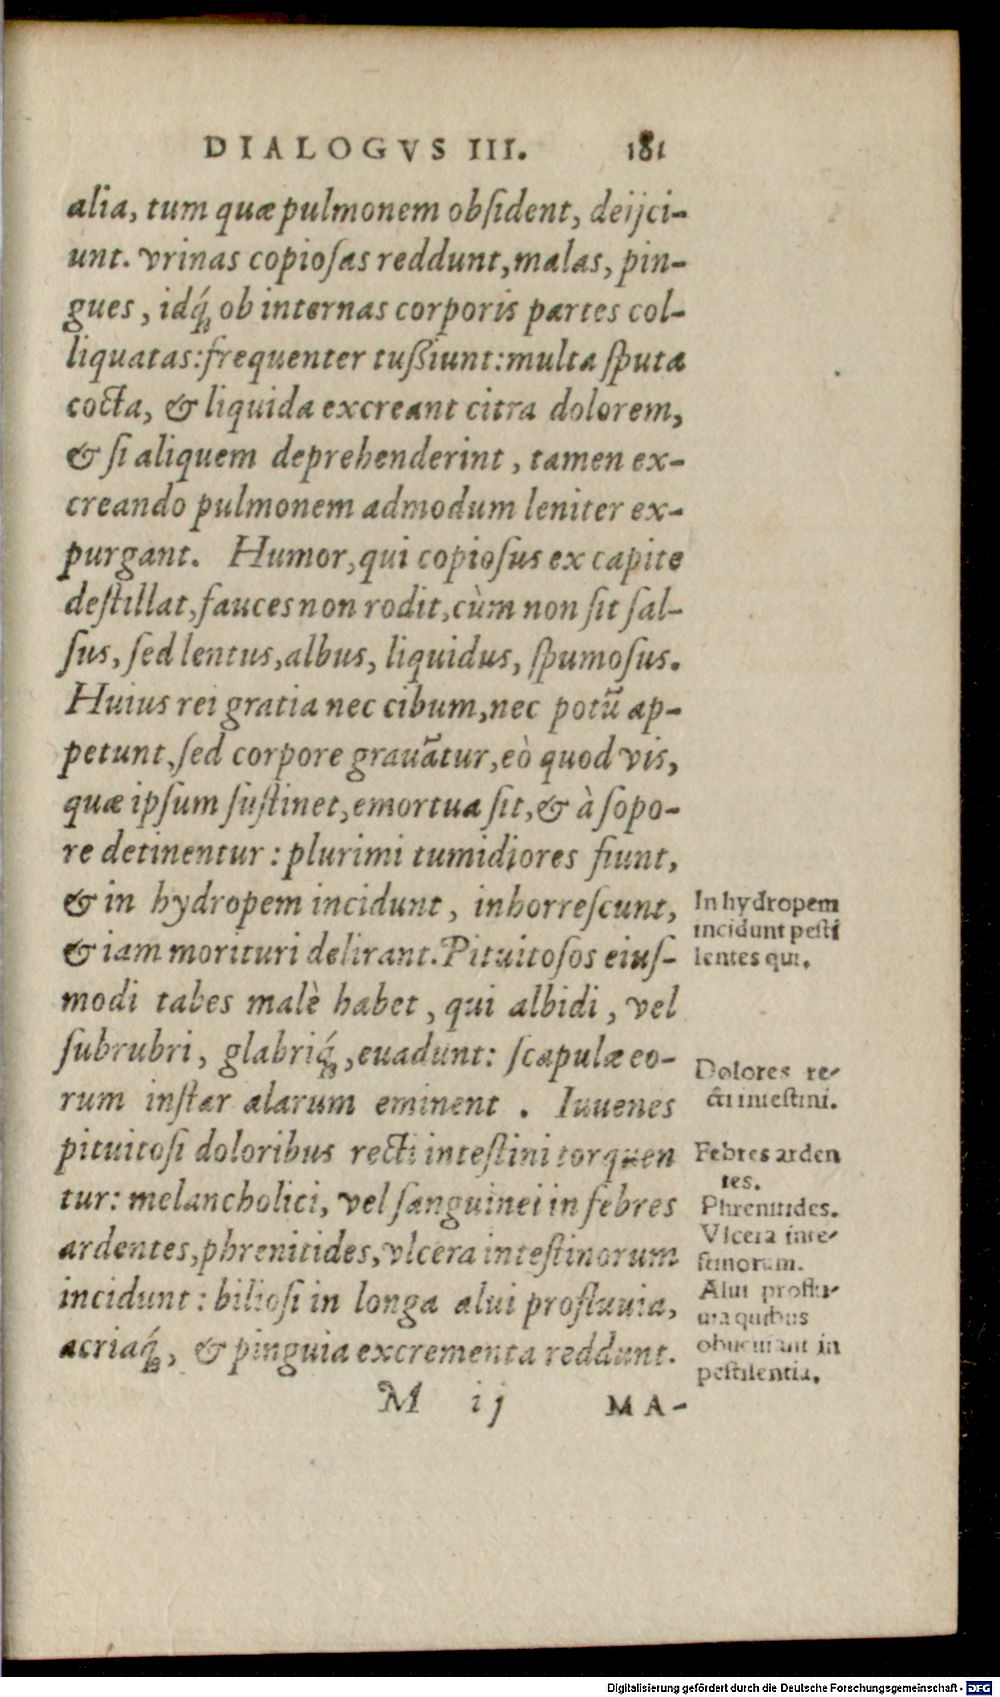 DIALOGVS III. 181
alia, tum quæ pulmonem obſident, deijci-
unt. vrinas copioſas reddunt, malas, pin-
gues, idq́; ob internas corporis partes col-
liquatas: frequenter tuſsiunt: multa ſputa
cocta, & liquida excreant citra dolorem,
& ſi aliquem deprehenderint, tamen ex-
creando pulmonem admodum leniter ex-
purgant. Humor, qui copioſus ex capite
deſtillat, fauces non rodit, cùm non ſit ſal-
ſus, ſed lentus, albus, liquidus, ſpumoſus.
Huius rei gratia nec cibum, nec potū ap-
petunt, ſed corpore grauātur, eò quod vis,
quæ ipſum ſuſtinet, emortua ſit, & à ſopo-
re detinentur: plurimi tumidiores fiunt,
& in hydropem incidunt, inhorreſcunt,
& iam morituri delirant. Pituitoſos eiuſ-
modi tabes malè habet, qui albidi, vel
ſubrubri, glabriq́;, euadunt: ſcapulæ eo-
rum inſtar alarum eminent. Iuuenes
pituitoſi doloribus recti inteſtini torquen
tur: melancholici, vel ſanguinei in febres
ardentes, phrenitides, vlcera inteſtinorum
incidunt: bilioſi in longa alui profluuia,
acriaq́;, & pinguia excrementa reddunt.
M ij MA-
In hydropem
incidunt peſti
lentes qui.
Dolores re-
cti inteſtini.
Febres arden
tes.
Phrenitides.
Vlcera inte-
ſtinorum.
Alui proflu-
uia quibus
obueniant in
peſtilentia.
Digitalisierung gefördert durch die Deutsche Forschungsgemeinschaft - DFG